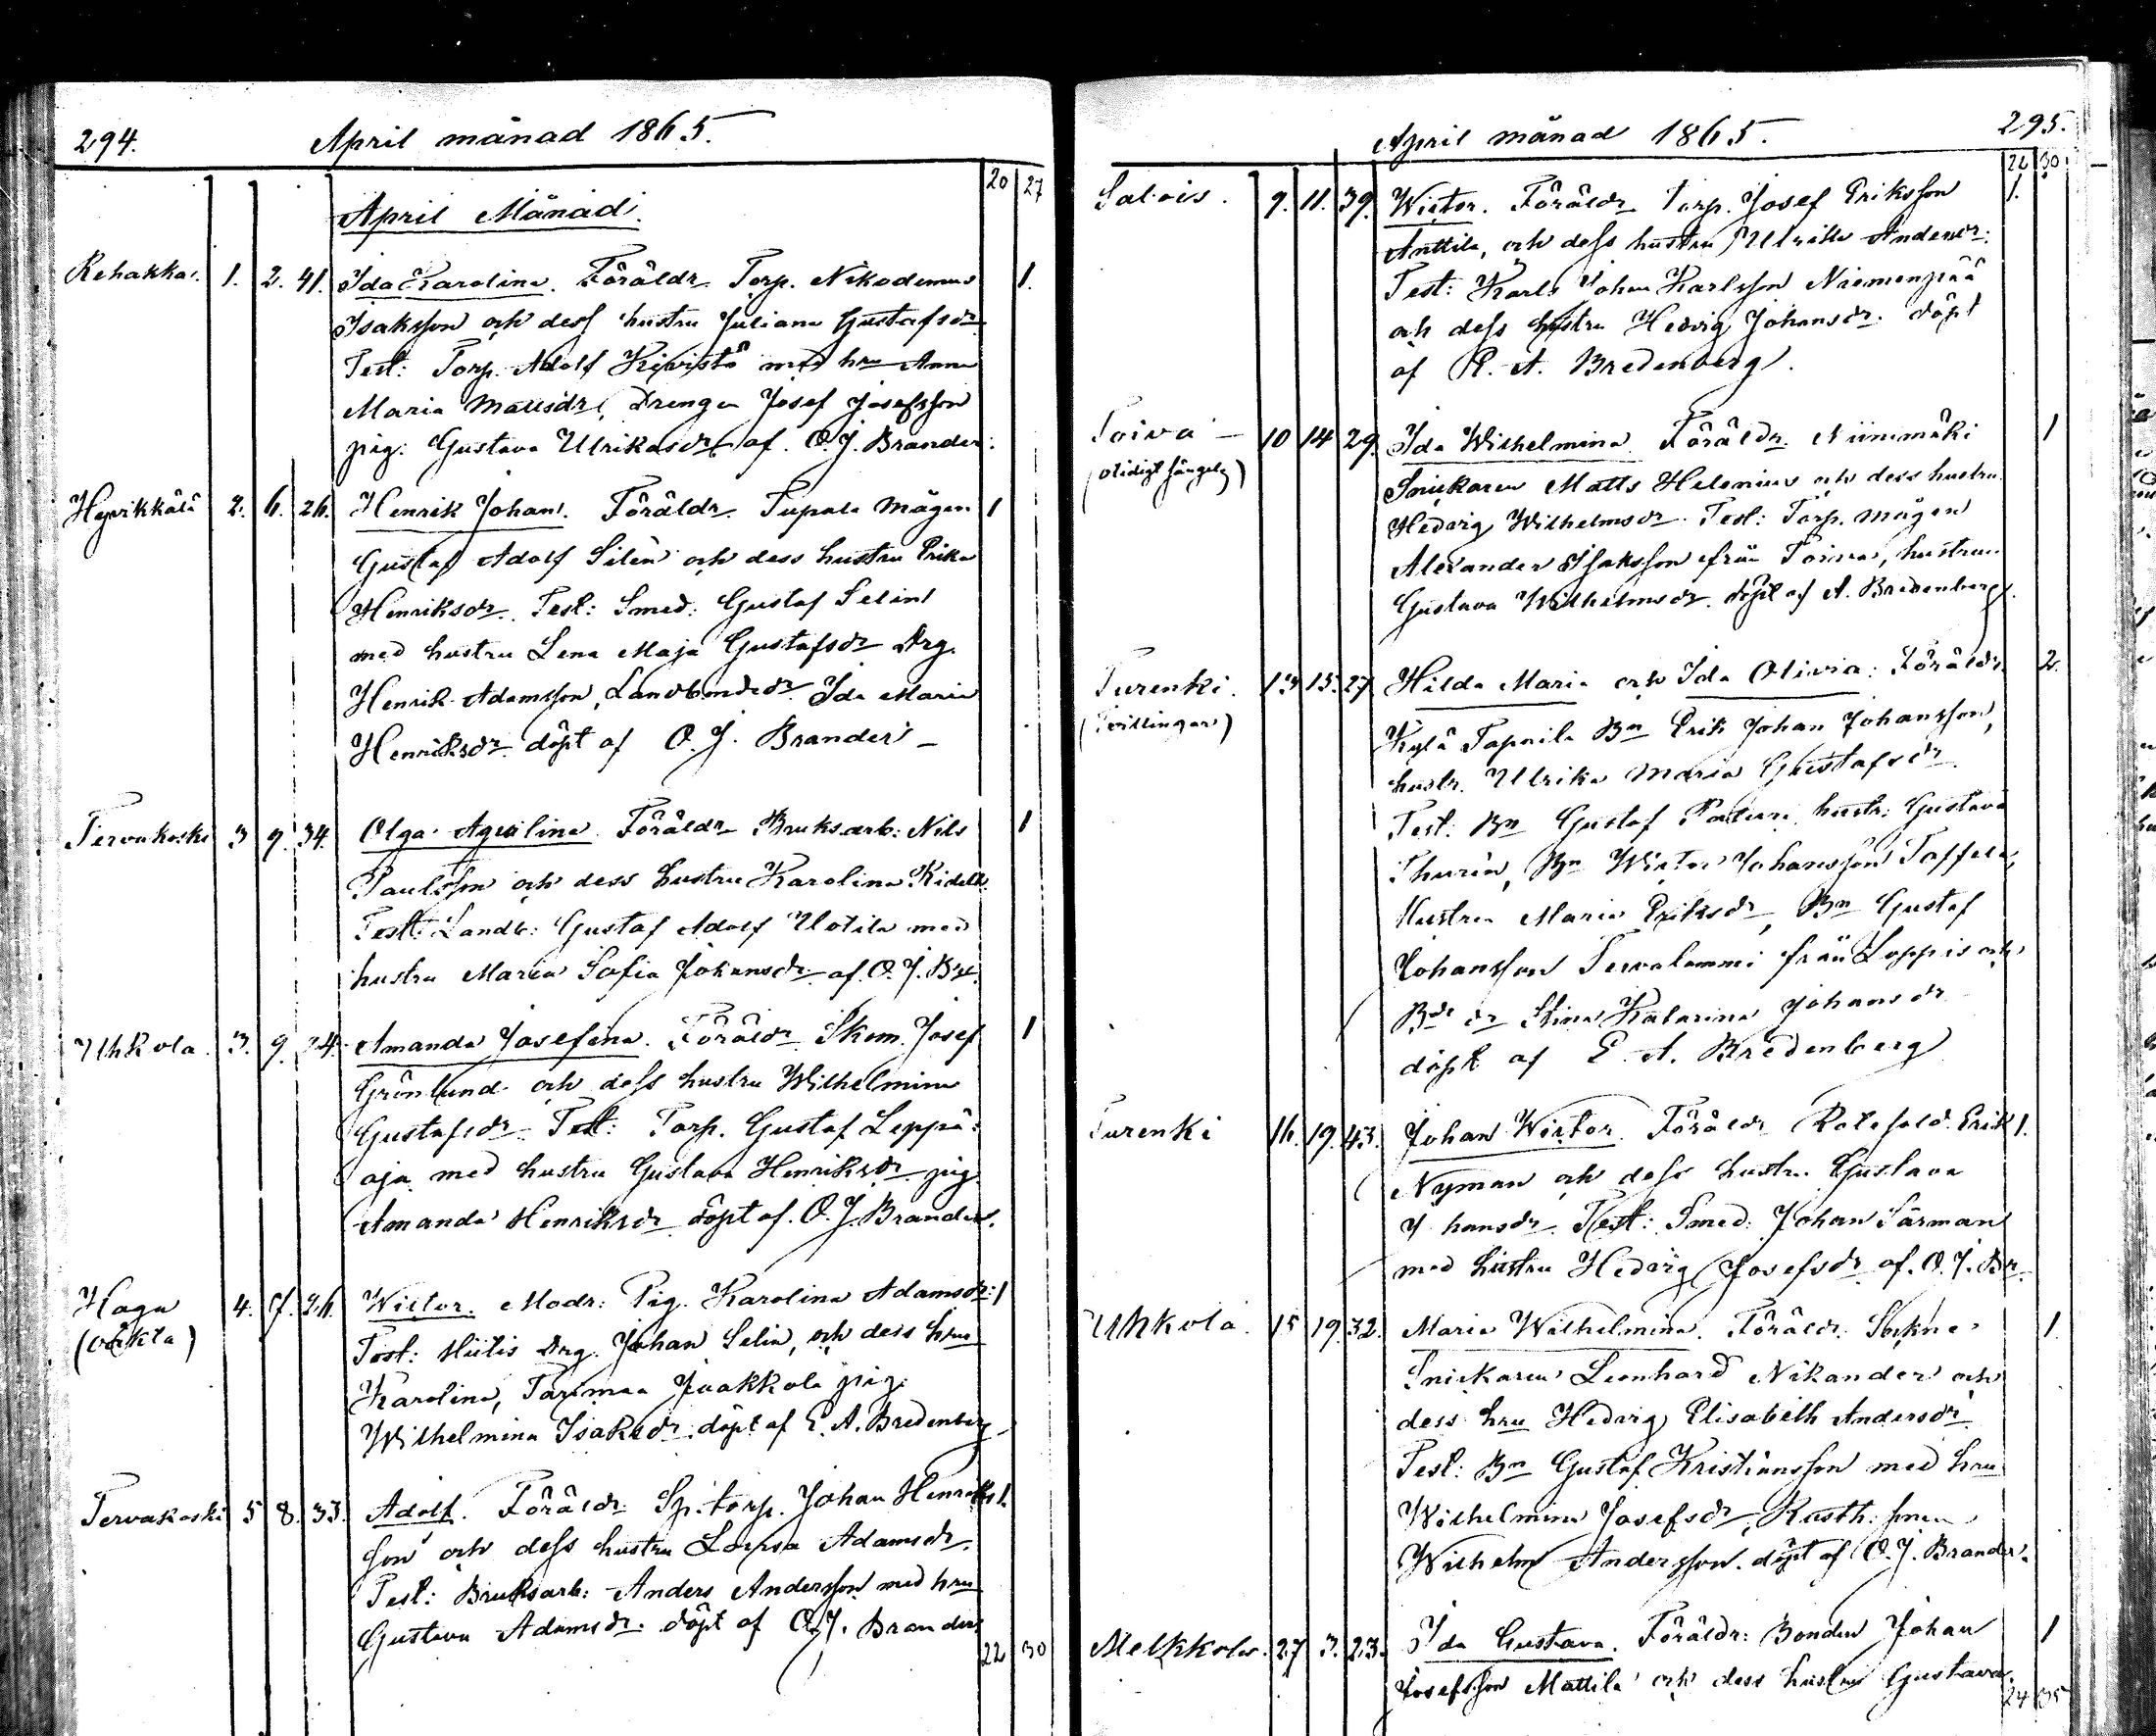 294. April månad 1865.
20 27
April Månad.
Rehakka. 1. 2. 41. Ida Karolina. Föräldr. Torp. Nikodemus 1.
Isaksson och dess hustru Juliana Gustafsdr
Test: Torp. Adolf Kivistö med hru Anna
Maria Mattsdr, Drengen Josef Josefsson
pig. Gustava Ulrikasdr af. O. J. Brander.
Hyvikkälä 2. 6. 26. Henrik Johan. Föräldr. Tupala Mågen 1
Gustaf Adolf Silén och dess hustru Erika
Henriksdr. Test: Smed: Gustaf Selin
med hustru Lena Maja Gustafsdr Drg.
Henrik Adamsson, Landbondedr. Ida Maria
Henriksdr. döpt af O. J. Brander –
Tervakoski 3 9. 34. Olga Aqvilina. Föräldr Bruksarb: Nils 1
Paulsson och dess hustru Karolina Kidell.
Test: Landb: Gustaf Adolf Uotila med
hustru Maria Sofia Johansdr. af. O. J. Br.
Uhkola. 3. 9. 24. Amanda Josefina. Föräldr. Skom. Josef 1
Grönlund och dess hustru Wilhelmina
Gustafsdr. Test: Torp. Gustaf Leppä-
oja med hustru Gustava Henriksdr. pig.
Amanda Henriksdr döpt af. O. J. Brander.
Haga 4. 9. 26. Wictor. Modr: Pig. Karolina Adamsdr: 1
(oäkta) Test: Hiitis Drg. Johan Selin, och dess hru
Karolina, Tarimaa Jaakkola pig.
Wilhelmina Isaksdr. döpt af E. A. Bredenberg
Tervakoski 5 8. 33. Adolf. Föräldr: Sp. torp. Johan Henriks 1.
son och dess hustru Lovisa Adamsdr.
Test: Bruksarb: Anders Andersson med hru
Gustava Adamsdr. döpt af O. J. Brander
22 30
April månad 1865. 295.
22 30
Salois. 9. 11. 39. Wictor. Föräldr Torp. Josef Eriksson 1.
Anttila, och dess hustru Ulrika Andersdr:
Test: Karl Johan Karlsson Niemenpää
och dess hustru Hedvig Johansdr. döpt
af E. A. Bredenberg.
Toiva – 10 14 29. Ida Wilhelmina. Föräldr. Niinimäki 1
Snickaren Matts Helenius och dess hustru
Hedvig Wilhelmsdr. Test: Torp. mågen
Alexander Isaksson från Toiva, hustrun
Gustava Wilhelmsdr. döpt af A. Bredenberg.
Turenki. 13 15. 27. Hilda Maria och Ida Olivia: Föräldr. 2.
(Tvillingar) Kylä Tapaila Bn Erik Johan Johansson,
hustr. Ulrika Maria Gustafsdr.
Test: Bn Gustaf Paturi hustr. Gustava
Thurén, Bn Wictor Johansson Toffela,
Hustru Maria Eriksdr, Bn Gustaf
Johansson Tervalammi från Loppis och
Bde dr Stina Katarina Johansdr
döpt af E. A. Bredenberg
Turenki 16. 19. 43. Johan Wictor. Föräldr Rotesold. Erik 1.
Nyman och dess hustru Gustava
Johansdr. Test: Smed: Johan Särman
med hustru Hedvig Josefsdr. af. O. J. Br.
Uhkola. 15 19. 32. Maria Wilhelmina. Föräldr: Sockne- 1
Snickaren Leonhard Nikander och
dess hru Hedvig Elisabeth Andersdr.
Test: Bn Gustaf Kristiansson med hru
Wilhelmina Josefsdr, Rusth. sonen
Wilhelm Andersson. döpt af O. J. Brander.
Melkkola. 27 3. 23. Ida Gustava. Föräldr: Bonden Johan 1
Josefsson Mattila och dess hustru Gustava
24 35